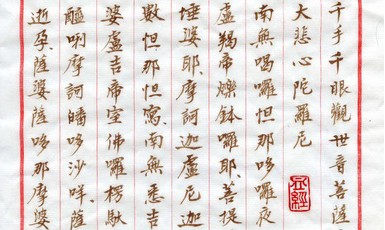 千手千眼觀世音菩薩
大悲心陀羅尼
南無喝囉怛那哆囉夜
盧羯帝爍鉢囉耶菩提
埵婆耶摩訶迦盧尼迦
數怛那怛寫南無悉吉
婆盧吉帝室佛囉楞馱
醯唎摩訶皤哆沙咩薩
逝孕薩婆薩哆那摩婆